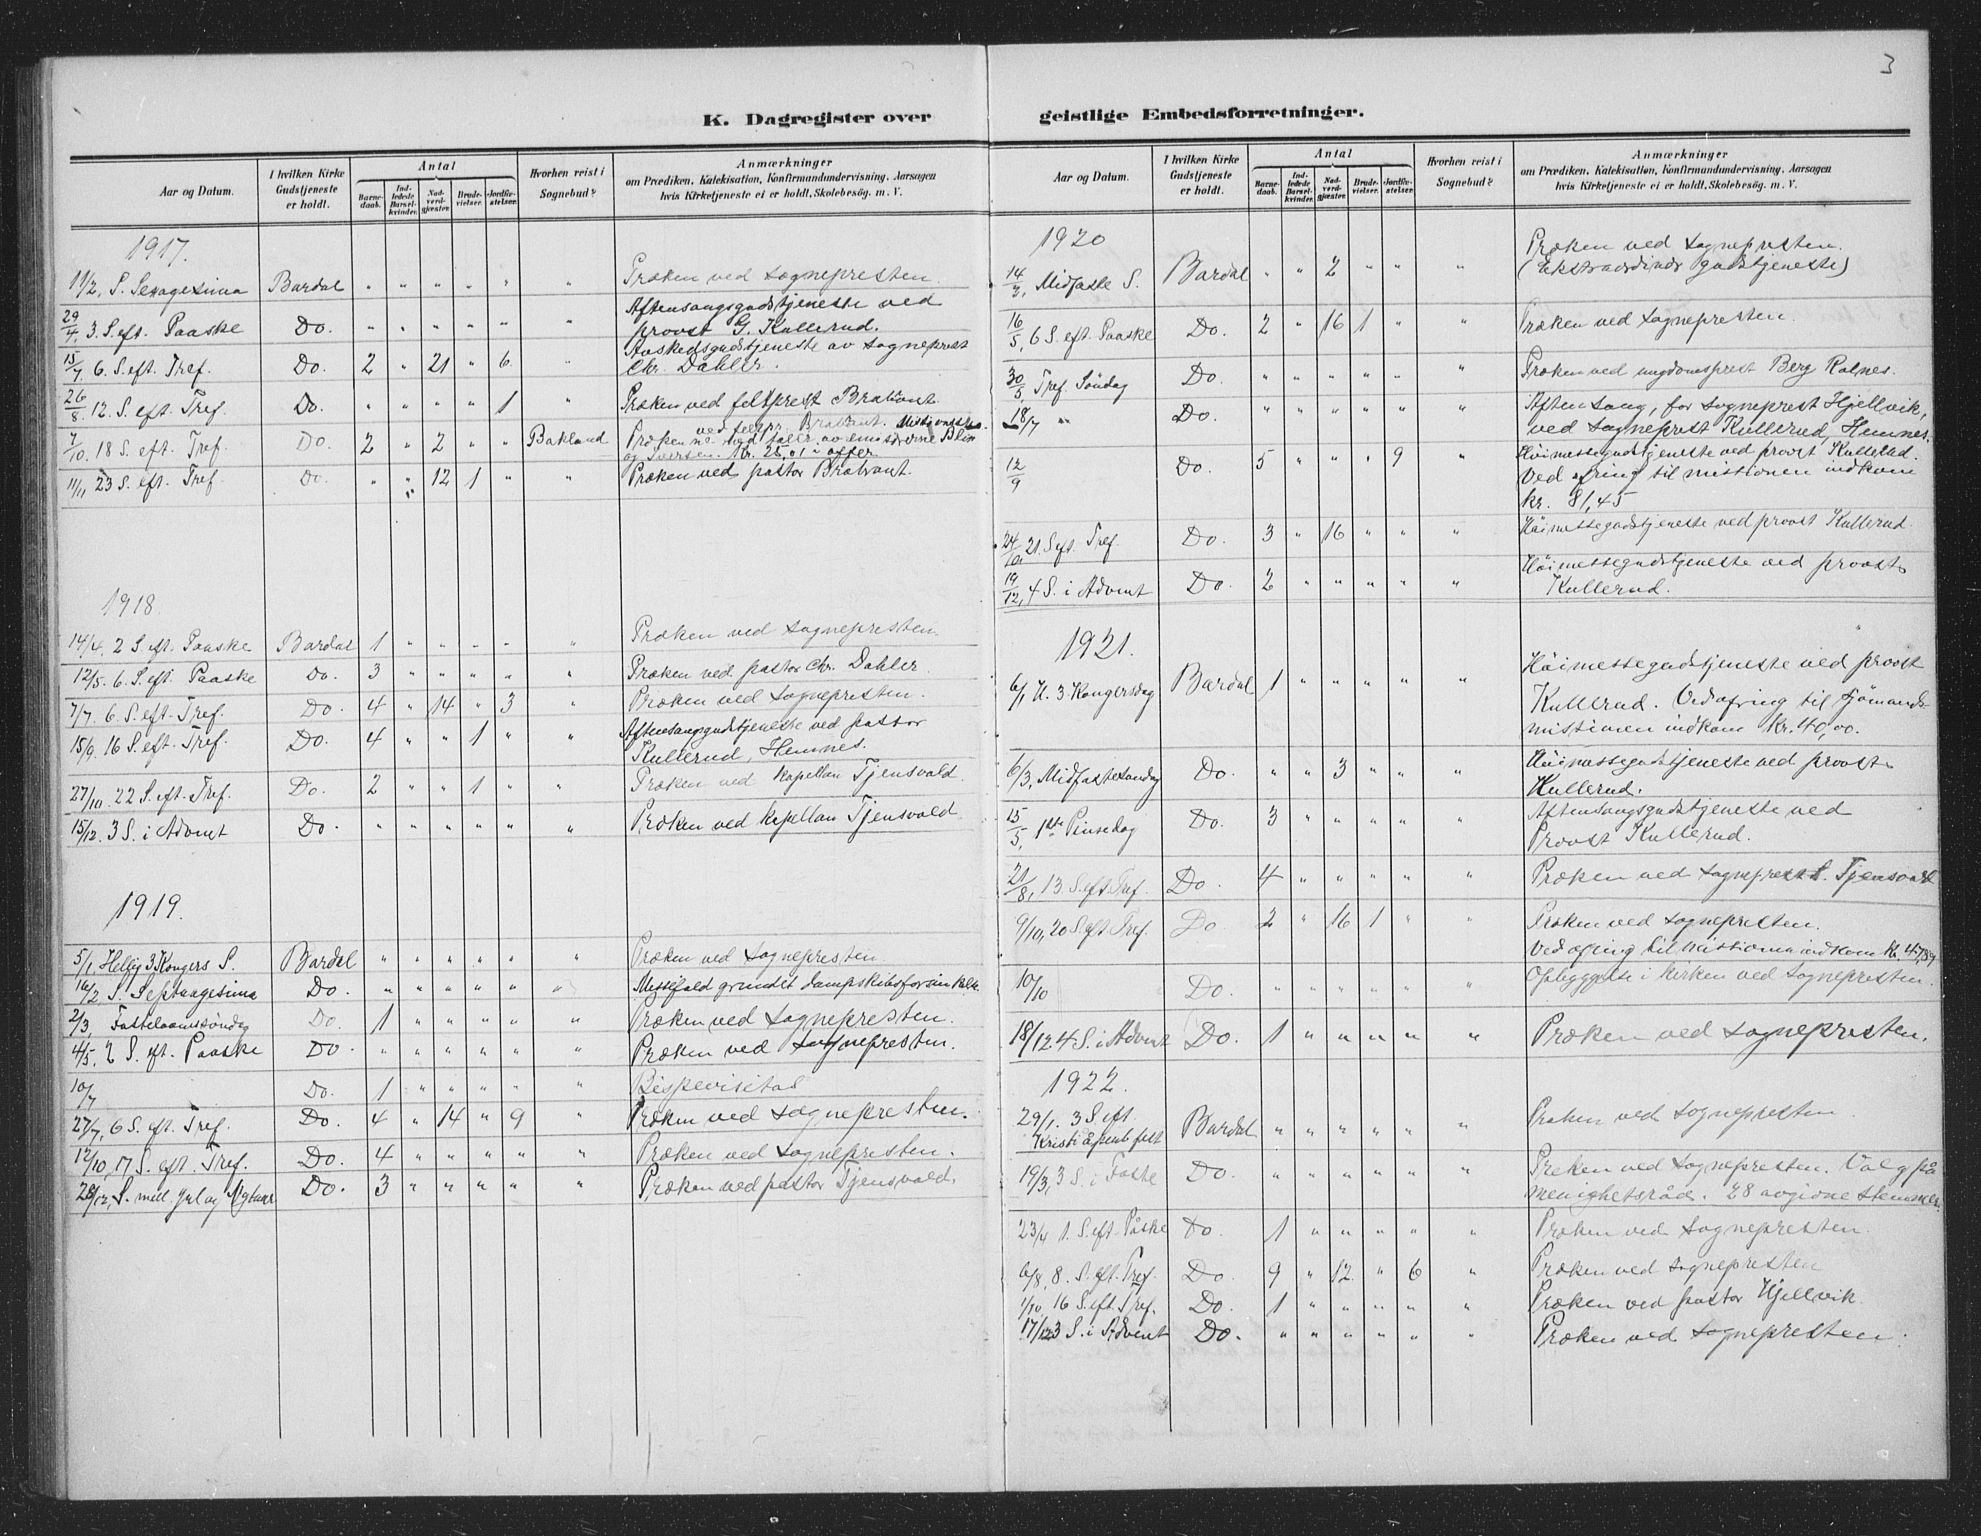 3
K. Dagregister over
Aar og Datum.
I hvilken Kirke
Gudstjeneste
er holdt.
Antal
Barne-
daab.
Ind-
ledede
Barsel-
kvinder.
Nad-
verd-
gjæster.
Brude-
vielser.
Jordfæ-
stelser.
Hvorhen reist i
Sognebud?
Anmærkninger
om Prædiken, Katekisation, Konfirmandundervisning, Aarsagen
hvis Kirketjeneste ei er holdt, Skolebesøg. m. V.
1917.
11/2, S. Sexagesima Bardal " " " " " " Præken ved sognepresten.
29/4, 3. S. eft. Paaske Do. " " " " " " Aftensangsgudstjeneste ved
provst G. Kullerud.
15/7, 6. S. eft. Tref. Do. 2 " 21 " 6 " Avskedsgudstjeneste av sogneprest
Chr. Dahler.
26/8. 12. S. eft. Tref. Do. " " " " 1 " Præken ved feltprest Brabrant.
7/10. 18 S. eft. Tref. Do. 2 " 2 " " Bakland
og Iversen. Kr. 25,01 offer
11/11, 23 S. eft. Tref. Do. " " 12 1 " " Præken ved pastor Brabrant.
1918.
14/4. 2 S. eft. Paaske Bardal 1 " " " " " Præken ved sognepresten.
12/5. 6. S. eft. Paaske Do. 3 " " " " " Præken ved pastor Chr. Dahler.
7/7. 6. S. eft. Tref. Do. 4 " 14 " 3 " Præken ved sognepresten.
15/9. 16 S. eft. Tref. Do. 4 " " 1 " " Aftensangsgudstjeneste ved pastor
Kullerud, Hemnes.
27/10. 22 S. eft. Tref. Do. 2 " " 1 " " Præken ved kapellan Tjensvold.
15/12. 3 S. i Advent Do. " " " " " " Præken ved kapellan Tjensvold.
1919.
5/1, Hellig 3 Kongers S. Bardal " " " " " " Præken ved sognepresten.
16/2 S. Septuagesima Do. " " " " " " Messefald grundet dampskibsforsinkelse.
2/3, Fastelavnssöndag Do. 1 " " " " " Præken ved sognepresten.
4/5. 2 S. eft. Paaske Do " " " " " " Præken ved sognepresten.
10/7 Do. 1 " " " " " Bispevisitas
27/7, 6 S. eft. Tref. Do. 4 " 14 " 9 " Præken ved sognepresten.
12/10, 17 S. eft. Tref. Do. 4 " " " " " Præken ved sognepresten.
28/12, S. mell. Jul og Nytaar Do. 3 " " " " " Præken ved pastor Tjensvold.
geistlige Embedsforretninger.
Aar og Datum.
I hvilken Kirke
Gudstjeneste
er holdt.
Antal
Barne-
daab.
Ind-
ledede
Barsel-
kvinder.
Nad-
verd-
gjæster.
Brude-
vielser.
Jordfæ-
stelser.
Hvorhen reist i
Sognebud?
Anmærkninger
om Prædiken, Katekisation, Konfirmandundervisning, Aarsagen
hvis Kirketjeneste ei er holdt, Skolebesög. m. V.
1920
14/3, Midfaste S. Bardal " " 2 " " " Præken ved sognepresten.
(Ekstraordinær gudstjeneste)
16/5, 6 S. eft. Paaske Do. 2 " 16 1 " " Præken ved sognepresten.
30/5 Tref. Söndag Do. " " " " " " Præken ved ungdomsprest Berg Kalnes.
18/7 " Do. " " " " " " Aftensang, for sogneprest Hjellvik,
ved sogneprest Kullerud, Hemnes.
12/9 Do. 5 " " " 9 " Höimessegudstjeneste ved provst Kullerud.
Ved ofring til missionen indkom
kr. 81,45
24/10 21. S. eft. Tref. Do. 3 " 16 " " " Höimessegudstjeneste ved provst Kullerud.
19/12, 4 S. i Advent Do. 2 " " " " " Höimessegudstjeneste ved provst
Kullerud.
1921.
6/1 H. 3. Kongersdag Bardal 1 " " " " " Höimessegudstjeneste ved provst
Kullerud. Ved ofring til sjömands-
missionen indkom Kr. 40,00.
6/3, Midfastesöndag Do. " " 3 " " " Höimessegudstjeneste ved provst
Kullerud.
15/5, 1ste Pinsedag Do. 3 " " " " " Aftensangsgudstjeneste ved
Provst Kullerud.
21/8, 13 S. eft. Tref. Do. 4 " " " " " Præken ved sogneprest S. Tjensvold
9/10, 20 S. eft. Tref. Do 2 " 16 1 " " Præken ved sognepresten.
Ved ofring til missionen indkom Kr. 47,39
10/10 Do. " " " " " " Opbyggelse i kirken ved sognepresten.
18/12 4 S. i Advent Do. 1 " " " " " Præken ved sognepresten.
1922.
29/1. 3 S. eft.
Kristi åpenb. fest Bardal " " " " " " Præken ved sognepresten.
19/3, 3 S. i Faste Do. " " " " " " Præken ved sognepresten. Valg på
menighetsråd. 28 avgivne stemmer.
23/4 1. S. eft. Påske Do. 1 " " " " " Præken ved sognepresten.
6/8, 8. S. eft. Tref. Do. 9 " 12 " 6 " Præken ved sognepresten
1/10 16 S. eft. Tref. Do. 1 " " " " " Præken ved pastor Hjellvik.
17/12 3 S. i Advent Do. " " " " " " Præken ved sognepresten.